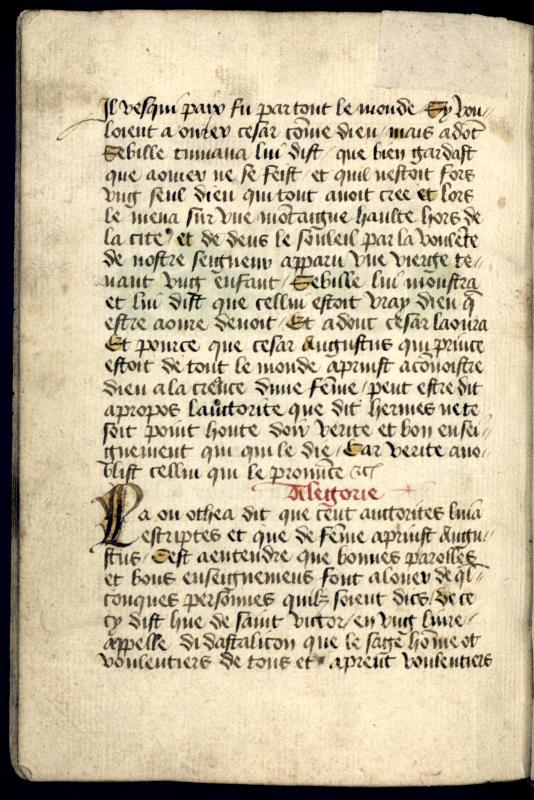 Il vesqui paix fu par tout le monde / Sy vou-
loient a ourer cesar cōme dieu / mais adōt
Sebille tumana lui dist / que bien gardast
que aourer ne se feist / et quil nestoit fors
vng seul dieu qui tout auoit cree et lors
le mena sur vne montaigne haulte hors de
la cite / et de dens le souleil par la voulēte
de nostre seigneur apparu vne vierge te-
nant vng enfant / Sebille lui moustra
et lui dist que cellui estoit vray dieu q̄
estre aoure deuoit / Et adont cesar laoura
Et pource que cesar Augustus qui prince
estoit de tout le monde aprinst acōnoistre
dieu a la creāce dune fēme / peut estre dit
a propos lauttorite que dit hermes ne te
soit point honte doir verite et bon ensei-
gnement qui qui le die / Car verite ano-
blist cellui qui le pronūce &c
Alegorie
La ou othea dit que cent auttorites lui a
escriptes et que de fēme aprinst Augu-
stus / Cest a entendre que bonnes parolles
et bons enseignemens font a louer de ql-
conques personnes quilz soient dics / de ce
cy dist hue de saint victor / en vng liure
appelle didastalicon que le sage hōme ot
voulentiers de tous et aprent voulentiers